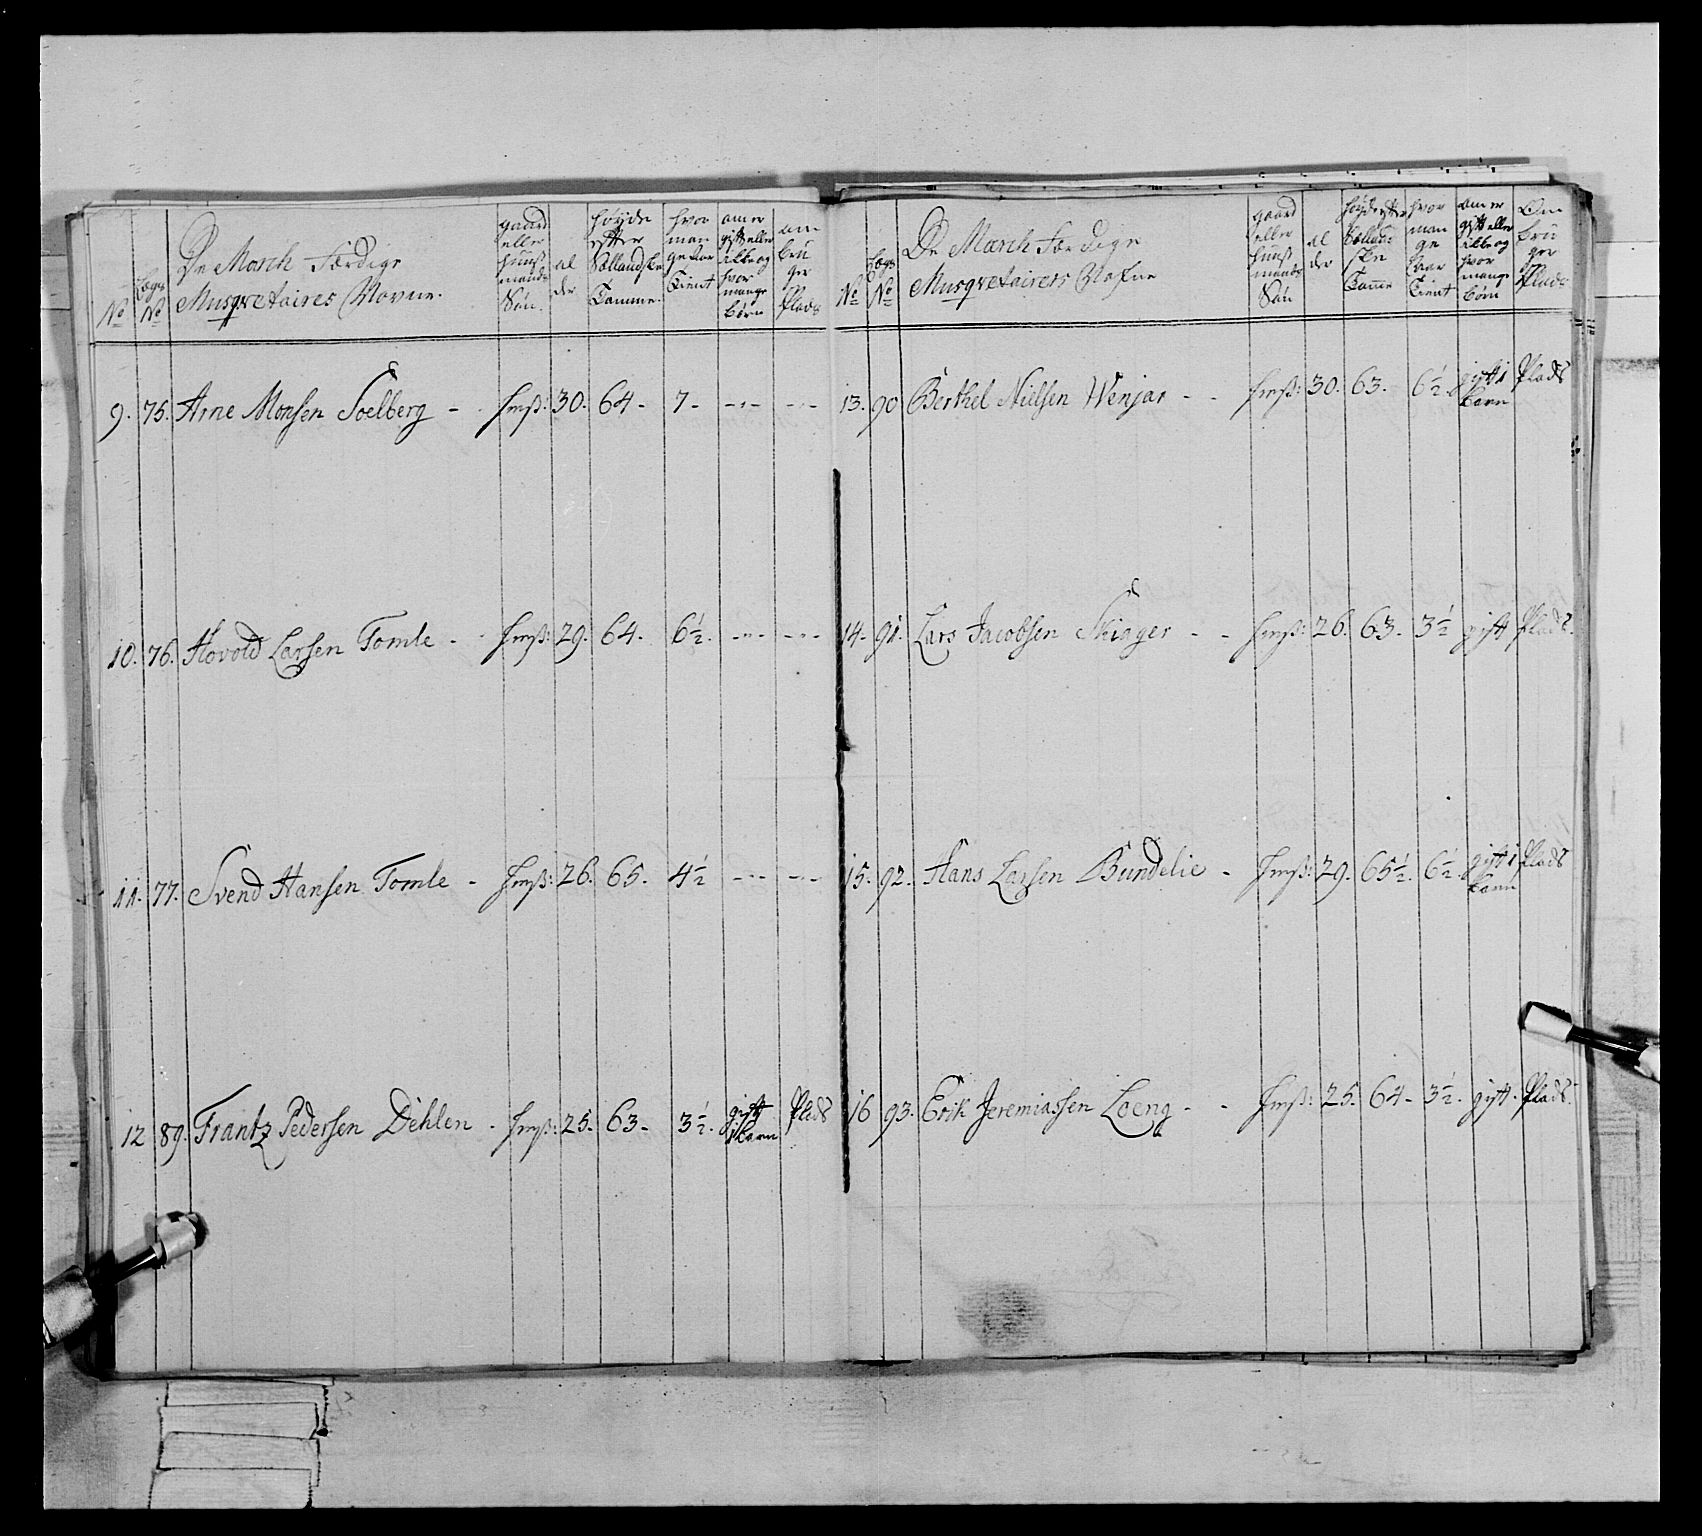 No
Legs No
De March Færdige
Musqvetairers Navne.
gaard eller huusmands Søn.
alder
høyde efter Hollandske Tomme.
hvor mange aar Tient
om er gift eller ikke og hvor mange børn
om bruger Plads
9. 75. Arne Monsen Soelberg - hmß: 30. 64- 7- --- ---
10. 76. Hovold Larsen Tomle - hmß: 29. 64- 6½. --- ---
11. 77. Svend Hansen Tomle - hmß: 26. 65. 4½ --- ---
12 89. Frantz Pedersen Dehlen - hmß: 25. 63- 3½. gift 1 barn Plads
No
Legs No
De March Færdige
Musqvetairers Nafne
gaard eller huusmands Søn
alder
høyde efter Hollandske Tomme
hvor mange aar Tient
om er gift eller ikke og hvor mange børn
Om bruger Plads
13. 90 Berthel Nielsen Wenjar - - hmß: 30. 63. 6½ gift 1 barn Plads
14. 91. Lars Jacobsen Skiager - - hmß: 26. 63- 3½ gift Plads.
15. 92. Hans Larsen Bundelie - hmß: 29. 65½. 6½. gift 1 barn Plads
16 93. Erik Jeremiassen Loeng - - hmß: 25. 64- 3½. gift. Plads.